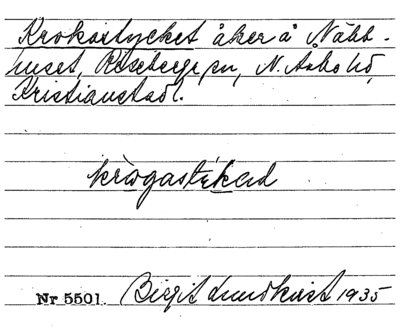 Krokastycket åker å "Näbb-
huset, Röseberga sn, N. Åsbo hd,
Kristianstad l.
krogastykad
Nr 5501. Birgit Lundkvist 1935